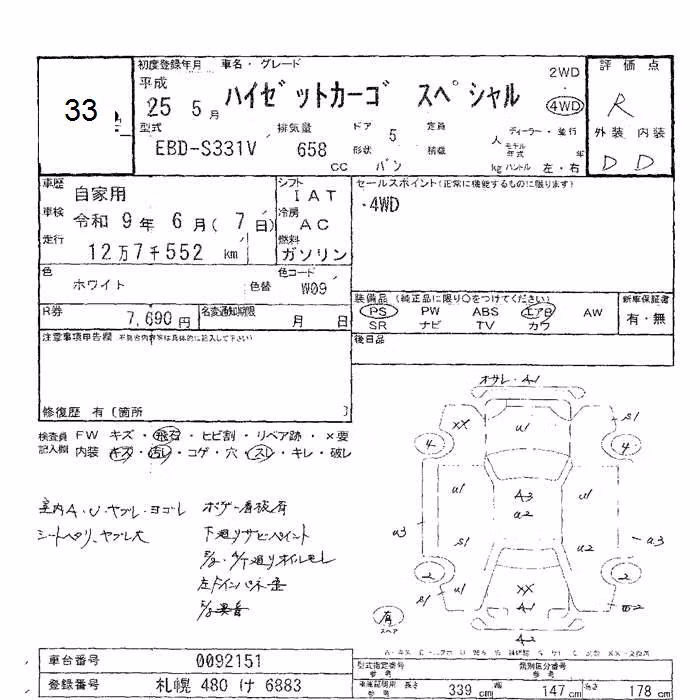 33
初度登録年月 車名・グレード
平成
25 5月
ハイゼットカーゴ スペシャル
2WD
4WD
評価点
R
外装 内装
D D
型式
EBD-S331V
排気量
658
CC
ドア
5
定員
人
形状
バン
積載
kg
ディーラー・並行
モデル年式
年
ハンドル 左・右
車歴
自家用
車検
令和 9年 6月( 7日)
走行
12万7千552 km
シフト
IAT
冷房
AC
燃料
ガソリン
セールスポイント(正常に機能するものに限ります)
・4WD
色
ホワイト
色替
色コード
W09
装備品(純正品に限り○をつけてください)
PS PW ABS エアB AW
SR ナビ TV カワ
新車保証書
有・無
R券
7,690円
名変通知期限
月 日
後日品
注意事項申告欄
修復歴 有〔箇所 〕
検査員記入欄
FW キズ・飛石・ヒビ割・リペア跡・×要
内装 キズ・汚レ・コゲ・穴・スレ・キレ・破レ
室内A・U・ヤブレ・ヨゴレ
シートヘタリ、ヤブレ大
ボデー看板有
下廻りサビペイント
オサレ・A1
XX
U1
S1
4
4
U1
A3
U2
U1
U3
S1
U2
a3
2
2
S1
U1
XX
A1
A2
有
スペア
車台番号
0092151
登録番号
札幌 480 け 6883
型式指定番号
参考
類別区分番号
参考
長さ
339 cm
幅
147 cm
高さ
178 cm